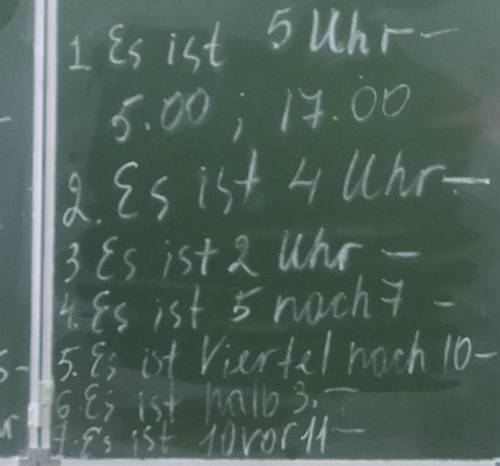 1 Es ist 5 Uhr -
5.00 ; 17.00
2. Es ist 4 Uhr -
3 Es ist 2 Uhr -
4. Es ist 5 nach 7 -
5. Es ist Viertel nach 10 -
6 Es ist halb 3. -
7. Es ist 10 vor 11 -